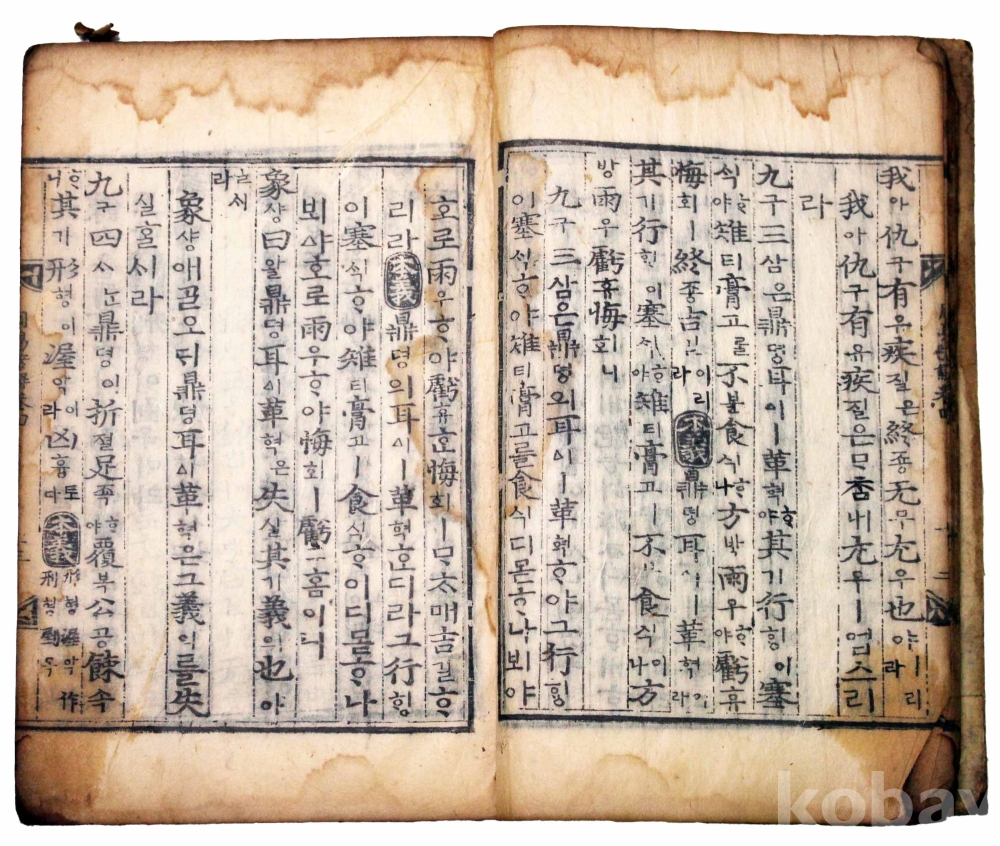 我아仇구有유疾질은終죵无무尤우也야ㅣ리라
我아仇구有유疾질은ᄆᆞᄎᆞᆷ내尤우ㅣ업스리
라
九구三삼은鼎뎡耳이ㅣ革혁ᄒᆞ야其기行ᄒᆡᆼ이塞
식ᄒᆞ야雉티膏고ᄅᆞᆯ不블食식ᄒᆞ나方방雨우ᄒᆞ야虧휴
悔회ㅣ終죵吉길이리라本義鼎뎡耳이ㅣ革혁이라
其기行ᄒᆡᆼ이塞식ᄒᆞ야雉티膏고ㅣ不블食식이나方
방雨우虧휴悔회니
九구三삼은鼎뎡의耳이ㅣ革혁ᄒᆞ야그行ᄒᆡᆼ
이塞식ᄒᆞ야雉티膏고를食식디몯ᄒᆞ나뵈야
ᄒᆞ로雨우ᄒᆞ야虧휴ᄒᆞᆫ悔회ㅣᄆᆞᄎᆞᆷ매吉길ᄒᆞ
리라本義鼎뎡의耳이ㅣ革혁ᄒᆞᆫ디라그行ᄒᆡᆼ
이塞식ᄒᆞ야雉티膏고ㅣ食식ᄒᆞ이디몯ᄒᆞ나
뵈야ᄒᆞ로雨우ᄒᆞ야悔회ㅣ虧휴홈이니
象샹曰왈鼎뎡耳이革혁은失실其기義의也야
ㅣ라서
象샹애ᄀᆞᆯ오ᄃᆡ鼎뎡耳이革혁은그義의를失
실ᄒᆞᆯᄉᆡ라
九구四ᄉᆞᄂᆞᆫ鼎뎡이折졀足족ᄒᆞ야覆복公공餗속
ᄒᆞ니其기形형이渥악이라凶흉토다本義形형渥악作작刑형剭옥
kobay